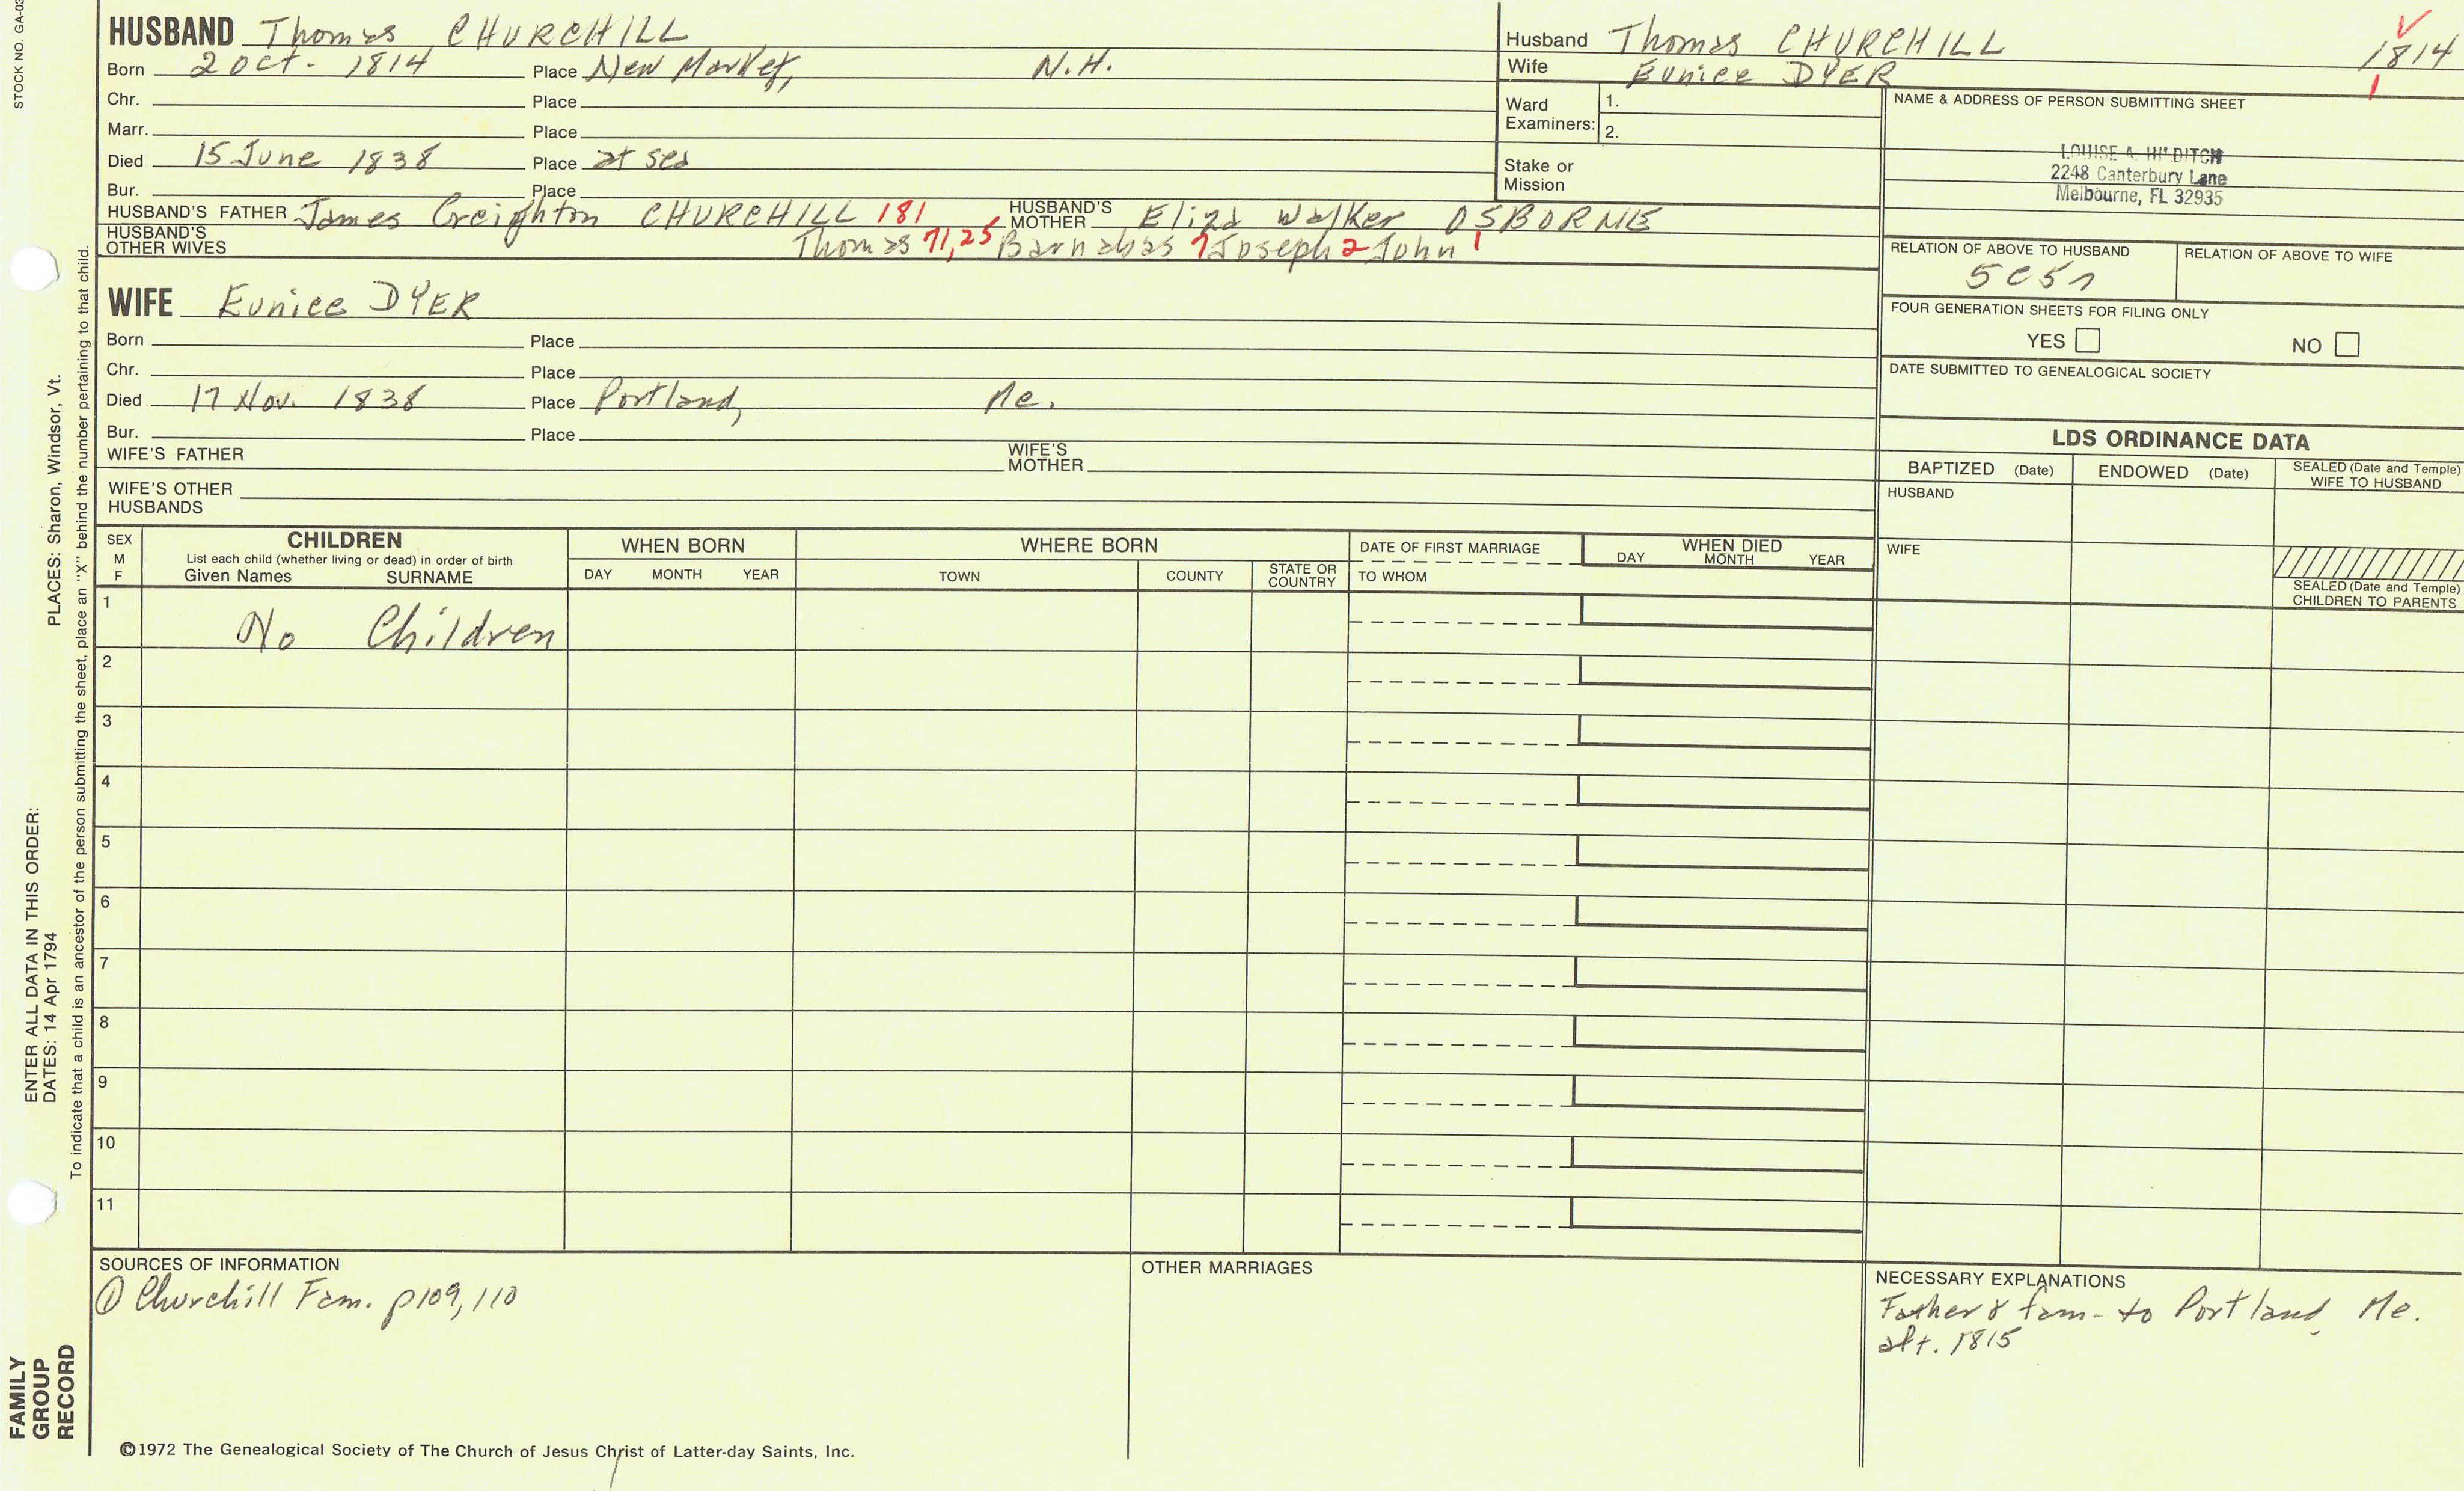 STOCK NO. GA-03
HUSBAND Thomas CHURCHILL
Born 2 Oct. 1814 Place New Market, N.H.
Chr. Place
Marr. Place
Died 15 June 1838 Place at sea
Bur. Place
HUSBAND'S FATHER James Creighton CHURCHILL 181 HUSBAND'S MOTHER Eliza Walker OSBORNE
HUSBAND'S OTHER WIVES Thomas 71,25 Barnabas 7 Joseph 2 John 1
WIFE Eunice DYER
Born Place
Chr. Place
Died 17 Nov. 1838 Place Portland, Me.
Bur. Place
WIFE'S FATHER WIFE'S MOTHER
WIFE'S OTHER HUSBANDS
Husband Thomas CHURCHILL 1814
Wife Eunice DYER 1
Ward Examiners: 1.
2.
Stake or Mission
NAME & ADDRESS OF PERSON SUBMITTING SHEET
LOUISE A. HILDITCH
2248 Canterbury Lane
Melbourne, FL 32935
RELATION OF ABOVE TO HUSBAND RELATION OF ABOVE TO WIFE
5C5r
FOUR GENERATION SHEETS FOR FILING ONLY
YES NO
DATE SUBMITTED TO GENEALOGICAL SOCIETY
LDS ORDINANCE DATA
BAPTIZED (Date) ENDOWED (Date) SEALED (Date and Temple) WIFE TO HUSBAND
HUSBAND
WIFE
SEALED (Date and Temple) CHILDREN TO PARENTS
SEX M F
CHILDREN
List each child (whether living or dead) in order of birth
Given Names SURNAME
WHEN BORN
DAY MONTH YEAR
WHERE BORN
TOWN COUNTY STATE OR COUNTRY
DATE OF FIRST MARRIAGE
TO WHOM
WHEN DIED
DAY MONTH YEAR
1 No Children
2
3
4
5
6
7
8
9
10
11
SOURCES OF INFORMATION
① Churchill Fam. p109,110
OTHER MARRIAGES
NECESSARY EXPLANATIONS
Father & fam. to Portland, Me.
aft. 1815
©1972 The Genealogical Society of The Church of Jesus Christ of Latter-day Saints, Inc.
FAMILY
GROUP
RECORD
ENTER ALL DATA IN THIS ORDER:
DATES: 14 Apr 1794
PLACES: Sharon, Windsor, Vt.
To indicate that a child is an ancestor of the person submitting the sheet, place an "X" behind the number pertaining to that child.